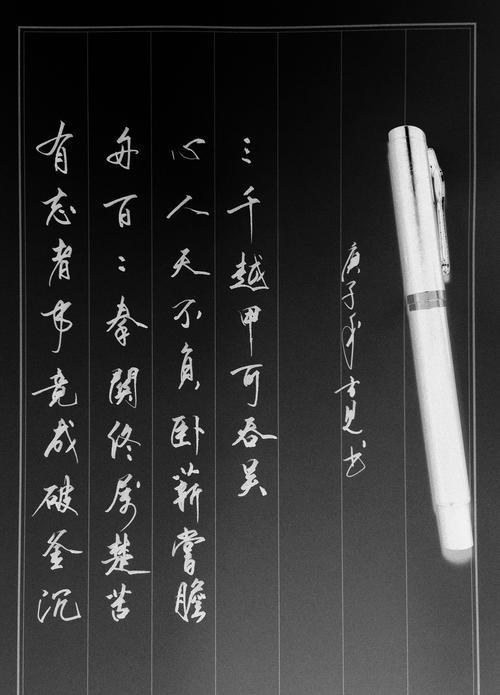 有志者事竟成破釜沉
舟百二秦関終屬楚苦
心人天不負卧薪嘗膽
三千越甲可吞吴
庚子年方見书